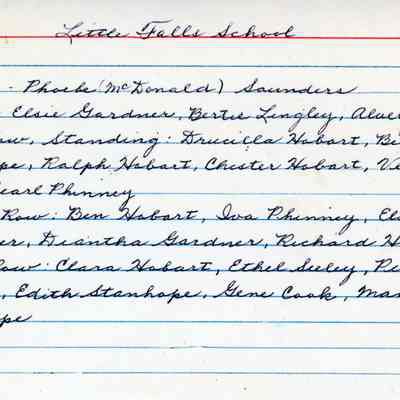 Little Falls School
- Phoebe (McDonald) Saunders
Elsie Gardner, Bertie Lingley, Alver
ow, Standing: Drucilla Hobart, Bi
pe, Ralph Hobart, Chester Hobart, Ve
earl Phinney
Row: Ben Hobart, Iva Phinney, El
er, Diantha Gardner, Richard H
Row: Clara Hobart, Ethel Seeley, Pe
, Edith Stanhope, Gene Cook, Ma
pe